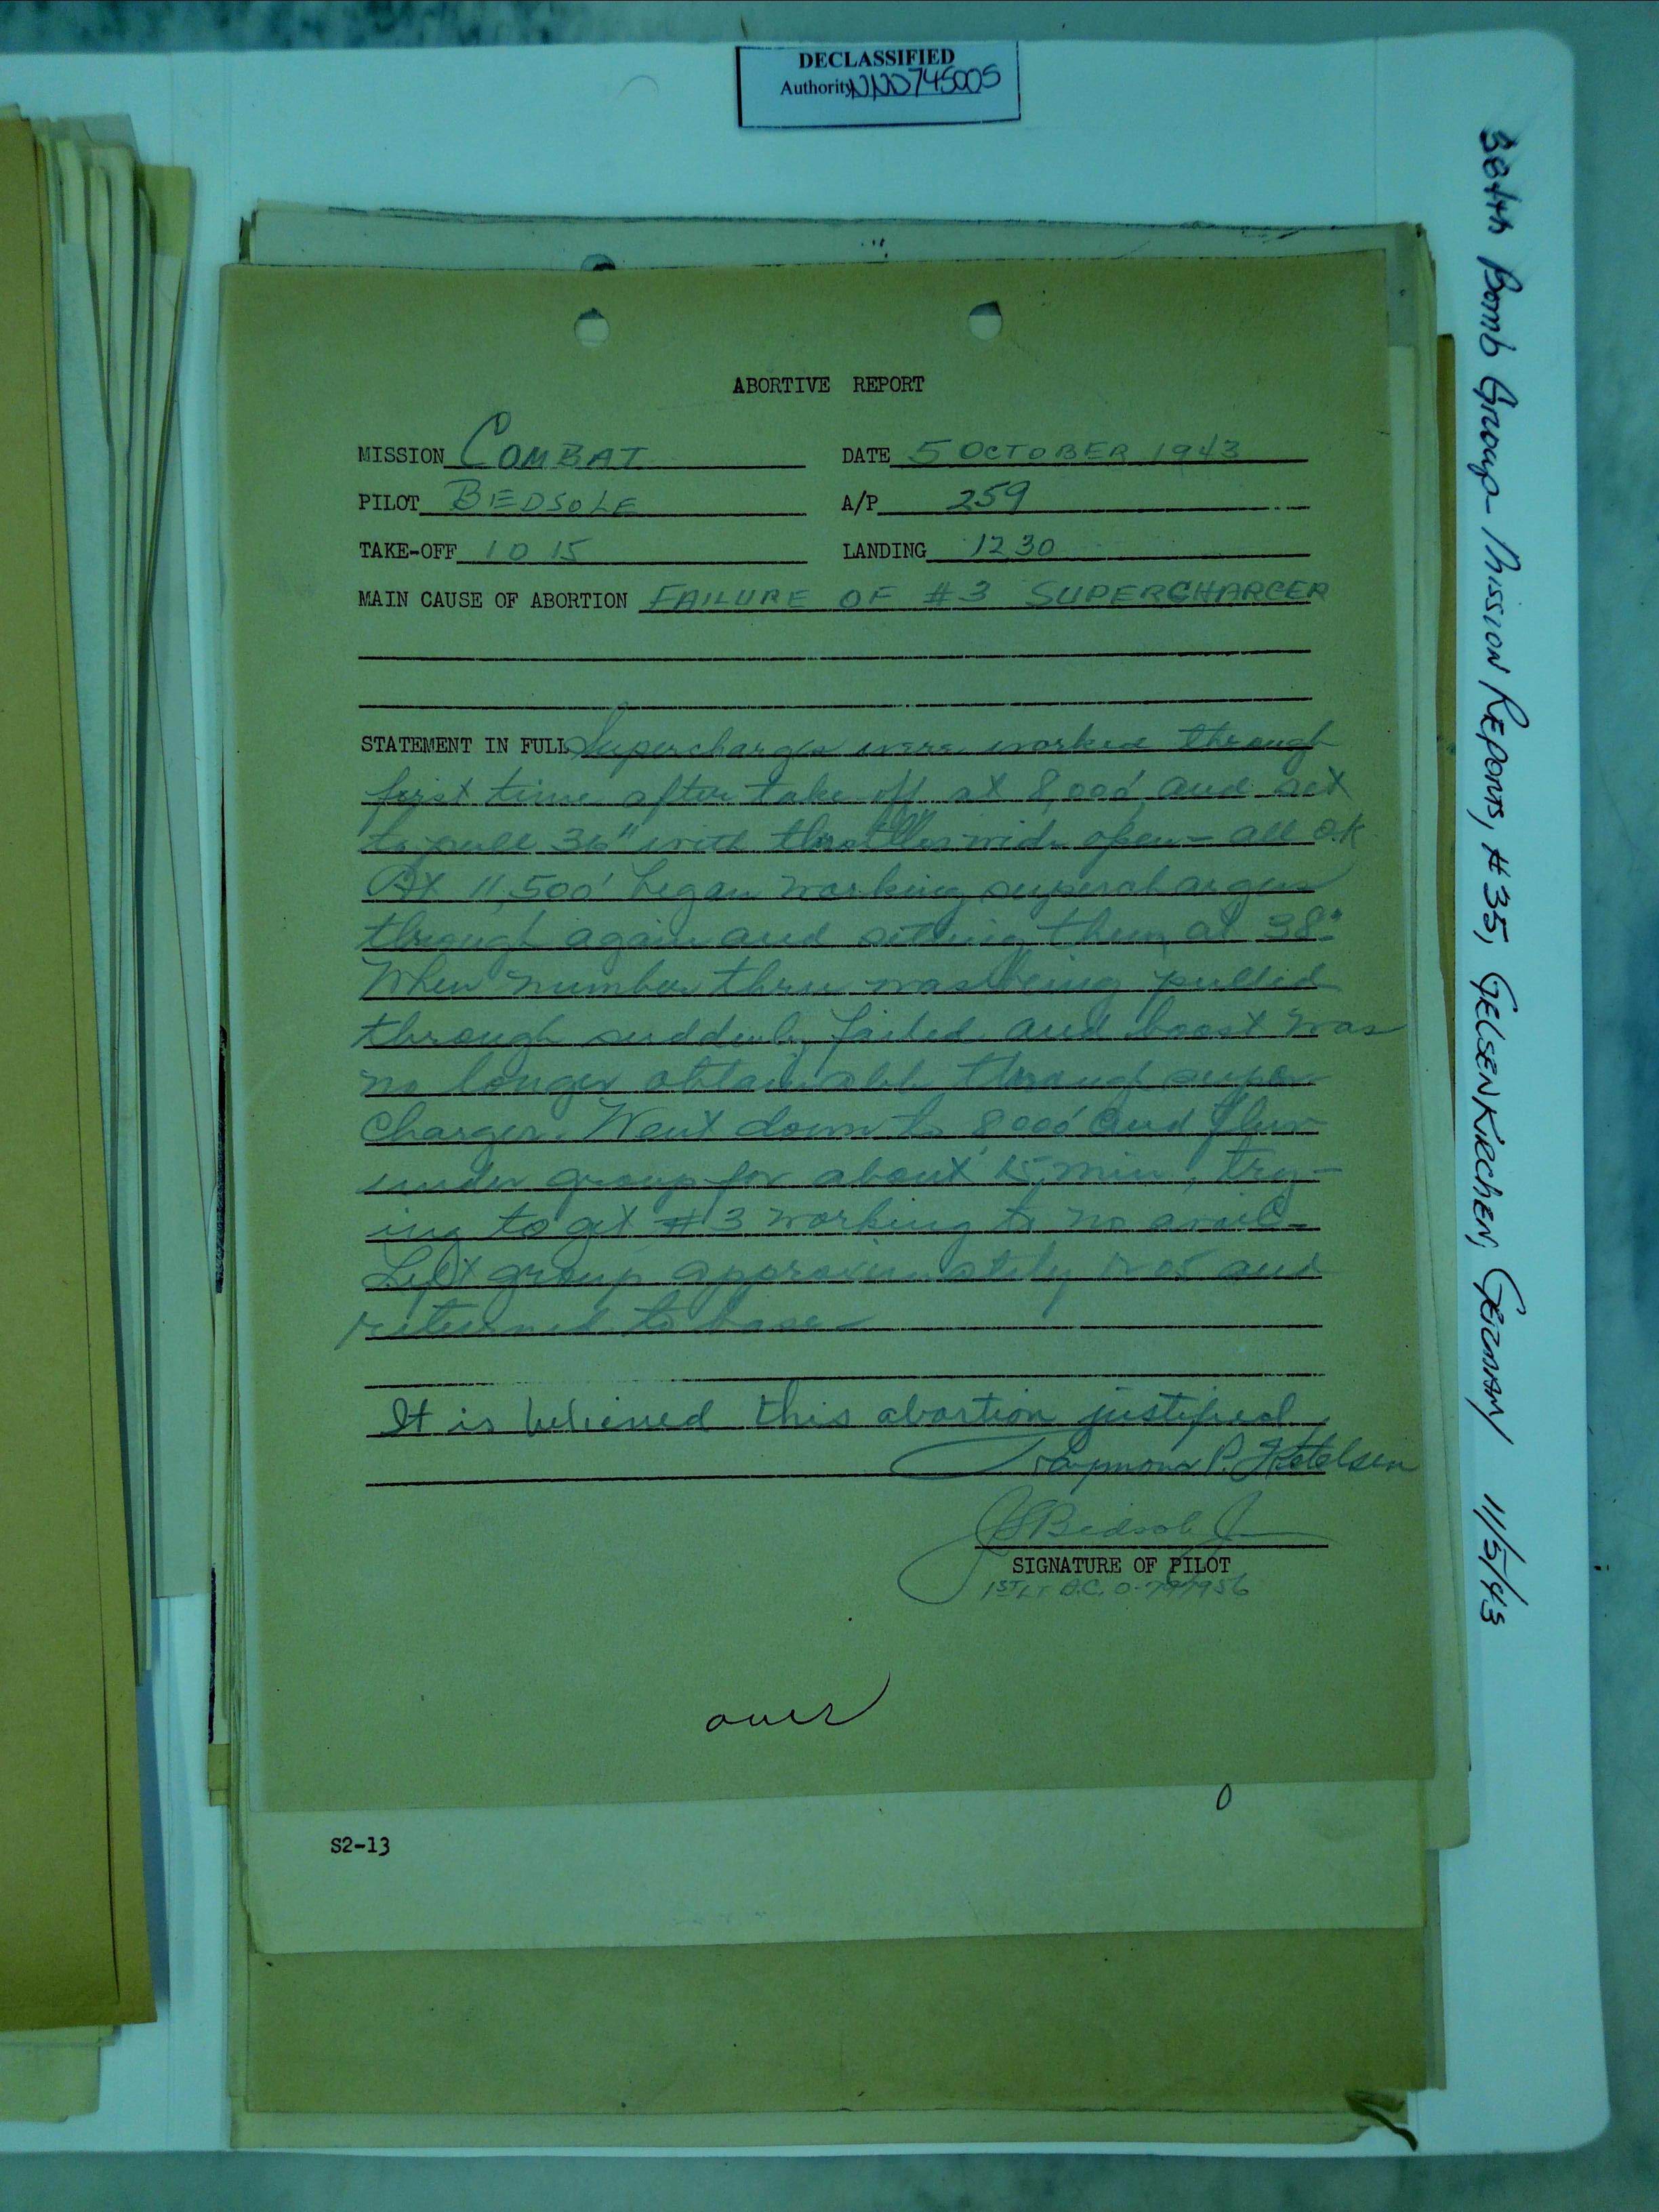 DECLASSIFIED
Authority NND745005
ABORTIVE REPORT
MISSION COMBAT DATE 5 OCTOBER 1943
PILOT BEDSOLE A/P 259
TAKE-OFF 1015 LANDING 1230
MAIN CAUSE OF ABORTION FAILURE OF #3 SUPERCHARGER
STATEMENT IN FULL Superchargers were worked through
first time after take off at 8,000' and set
to pull 36" with throttles wide open - all O.K.
At 11,500' began working superchargers
through again and setting them at 38".
When number three was being pulled
through suddenly failed and boost was
no longer obtainable through super
charger. Went down to 8000' and flew
under group for about 15 min, try-
ing to get #3 working to no avail -
Left group approximately 1205 and
returned to base -
It is believed this abortion justified.
Raymond P. Ketelsen
J S Bedsole Jr
SIGNATURE OF PILOT
1ST LT A.C. O-797956
over
S2-13
384th Bomb Group Mission Reports, #35, GELSENKIRCHEN, GERMANY 11/5/43